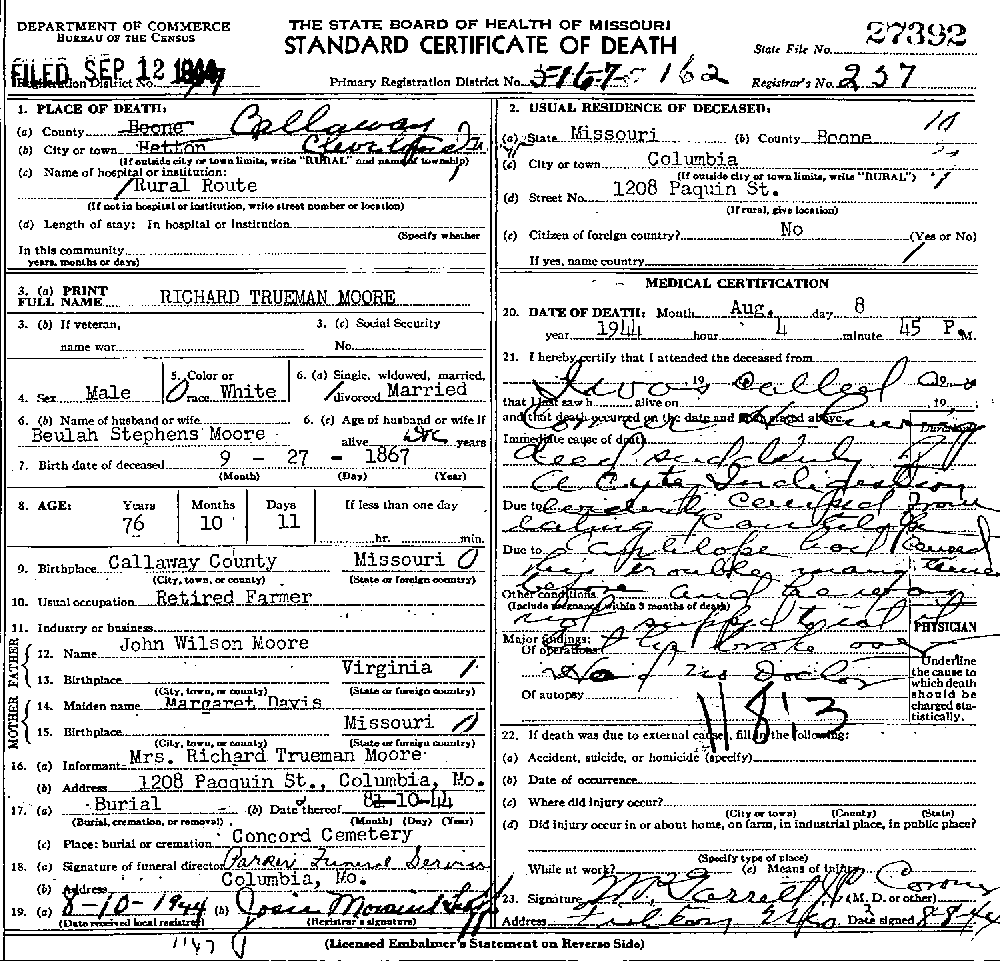 DEPARTMENT OF COMMERCE
BUREAU OF THE CENSUS
THE STATE BOARD OF HEALTH OF MISSOURI
STANDARD CERTIFICATE OF DEATH
State File No. 27392
FILED SEP 12 1944
Registration District No.
Primary Registration District No. 5167 162
Registrar's No. 237
1. PLACE OF DEATH:
(a) County Boone Callaway
(b) City or town Hatton
(If outside city or town limits, write "RURAL" and name of township)
(c) Name of hospital or institution:
Rural Route
(If not in hospital or institution, write street number or location)
(d) Length of stay: In hospital or Institution
(Specify whether
In this community
years, months or days)
2. USUAL RESIDENCE OF DECEASED:
(a) State Missouri (b) County Boone
(c) City or town Columbia
(If outside city or town limits, write "RURAL")
(d) Street No. 1208 Paquin St.
(If rural, give location)
(e) Citizen of foreign country? No (Yes or No)
If yes, name country
3. (a) PRINT FULL NAME RICHARD TRUEMAN MOORE
3. (b) If veteran, name war
3. (c) Social Security No.
4. Sex Male
5. Color or race White
6. (a) Single, widowed, married, divorced Married
6. (b) Name of husband or wife Beulah Stephens Moore
6. (c) Age of husband or wife if alive years
7. Birth date of deceased 9 - 27 - 1867
(Month) (Day) (Year)
8. AGE: Years 76 Months 10 Days 11 If less than one day
hr. min.
9. Birthplace Callaway County Missouri
(City, town, or county) (State or foreign country)
10. Usual occupation Retired Farmer
11. Industry or business
FATHER
12. Name John Wilson Moore
13. Birthplace Virginia
(City, town, or county) (State or foreign country)
MOTHER
14. Maiden name Margaret Davis
15. Birthplace Missouri
(City, town, or county) (State or foreign country)
16. (a) Informant Mrs. Richard Trueman Moore
(b) Address 1208 Paquin St., Columbia, Mo.
17. (a) Burial (b) Date thereof 8-10-44
(Burial, cremation, or removal) (Month) (Day) (Year)
(c) Place: burial or cremation Concord Cemetery
18. (a) Signature of funeral director Parker Funeral Service
(b) Address Columbia, Mo.
19. (a) 8-10-1944 (b) Josie
(Date received local registrar) (Registrar's signature)
MEDICAL CERTIFICATION
20. DATE OF DEATH: Month Aug. day 8
year 1944 hour 4 minute 45 P. M.
21. I hereby certify that I attended the deceased from
19
I was called as
that I last saw h alive on 19
Coroner
and that death occurred on the date and hour stated above.
Duration
Immediate cause of death
died suddenly of
acute Indigestion
Due to evidently caused from
eating Cantilope
Due to Cantilope had caused
his trouble many times
before and he was
Other conditions
(Include pregnancy within 3 months of death)
not supposed to eat
PHYSICIAN
Major findings:
Of operations
Had no Doctor
Of autopsy
Underline the cause to which death should be charged statistically.
118 3
22. If death was due to external causes, fill in the following:
(a) Accident, suicide, or homicide (specify)
(b) Date of occurrence
(c) Where did injury occur?
(City or town) (County) (State)
(d) Did injury occur in or about home, on farm, in industrial place, in public place?
(Specify type of place)
While at work? (e) Means of injury
23. Signature Coroner (M. D. or other)
Address Fulton, Mo Date signed 8-8-44
1147
(Licensed Embalmer's Statement on Reverse Side)